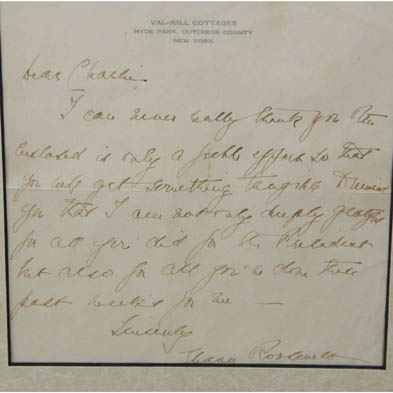 VAL-KILL COTTAGES
HYDE PARK, DUTCHESS COUNTY
NEW YORK
Dear Charlie
I can never really thank you. The
enclosed is only a feeble effort so that
you will get something tangible to remind
you that I am not only deeply grateful
for all you did for the President
but also for all you've done these
past weeks for me —
Sincerely
Eleanor Roosevelt